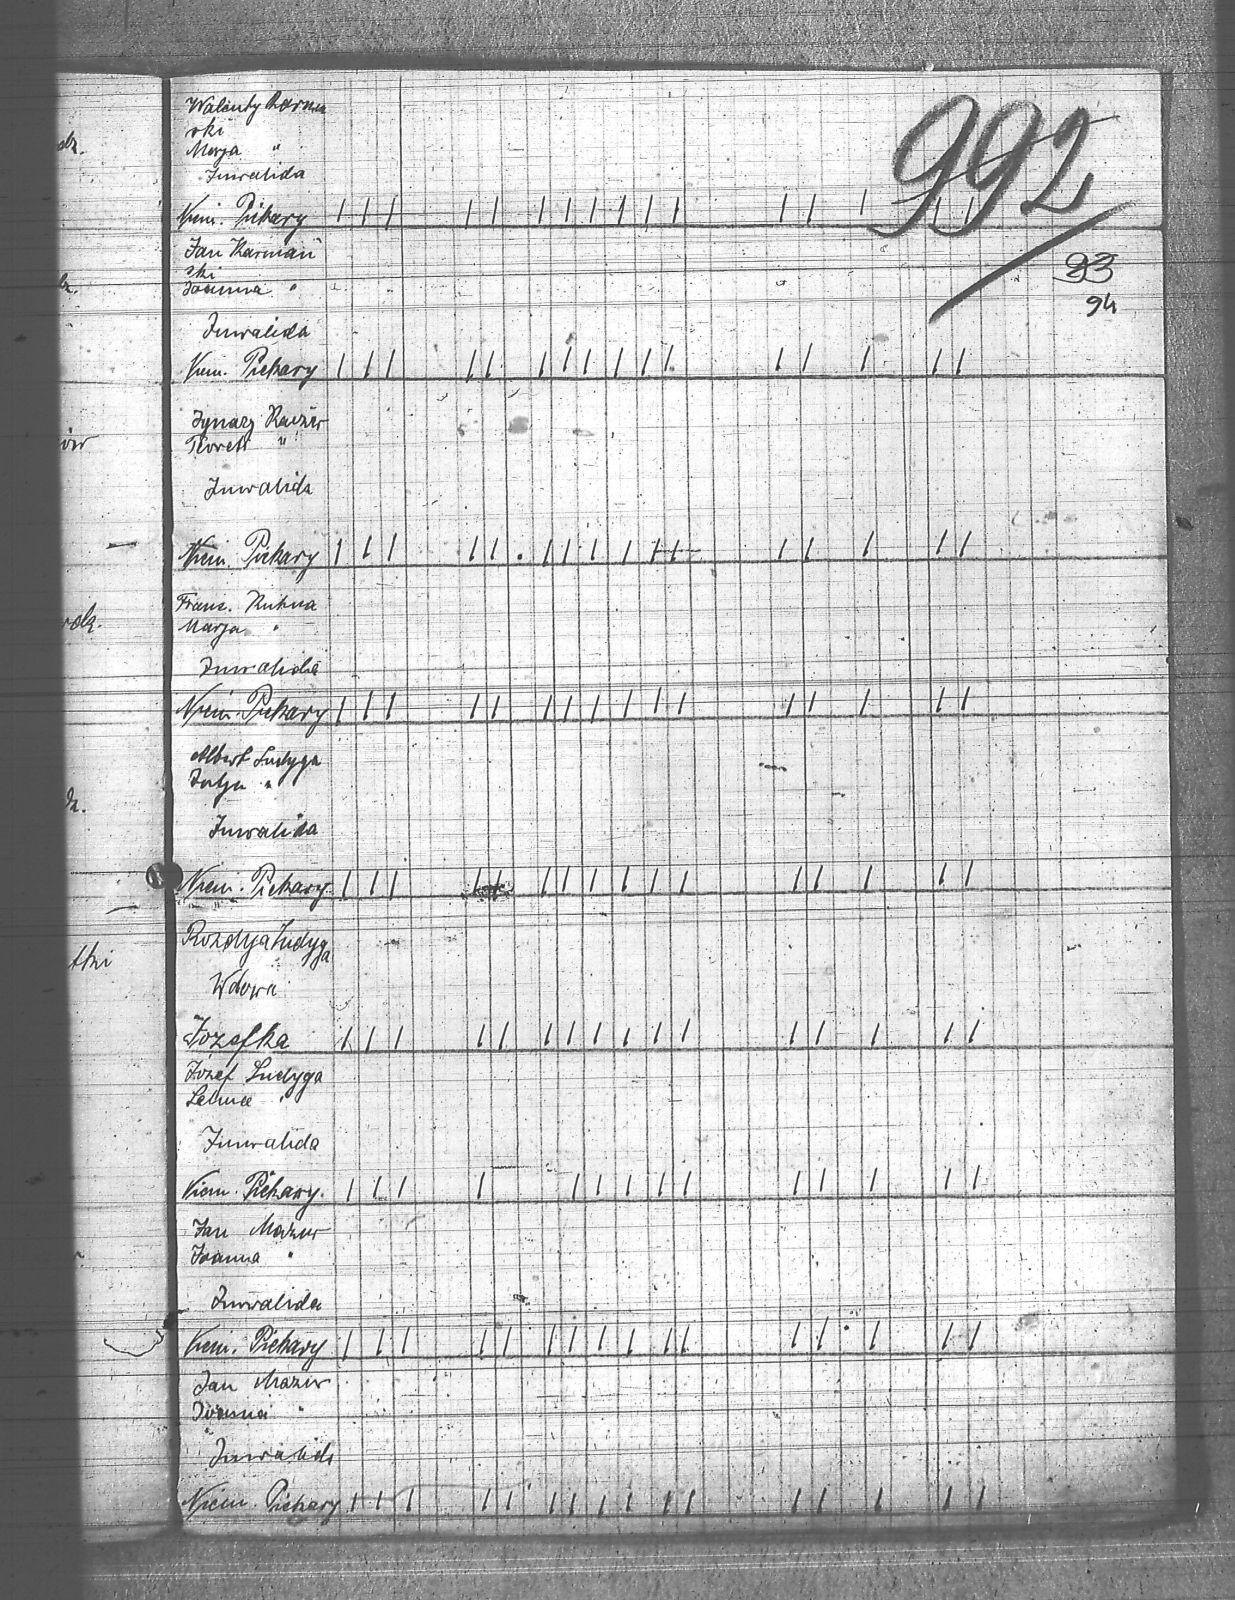 992
93
94
Walenty Karmań
ski
Marja "
Inwalida
Niem. Piekary
Jan Karmań
ski
Joanna "
Inwalida
Niem. Piekary
Ignacy
"
Inwalida
Niem. Piekary
Franc. Kuhna
Marja "
Inwalida
Niem. Piekary
Albert Ludyga
Julja "
Inwalida
Niem. Piekary
Ludyga
Wdowa
Józefka
Józef Ludyga
"
Inwalida
Niem. Piekary
Jan Mazur
Joanna "
Inwalida
Niem. Piekary
Jan Mazur
Joanna "
Inwalida
Niem. Piekary